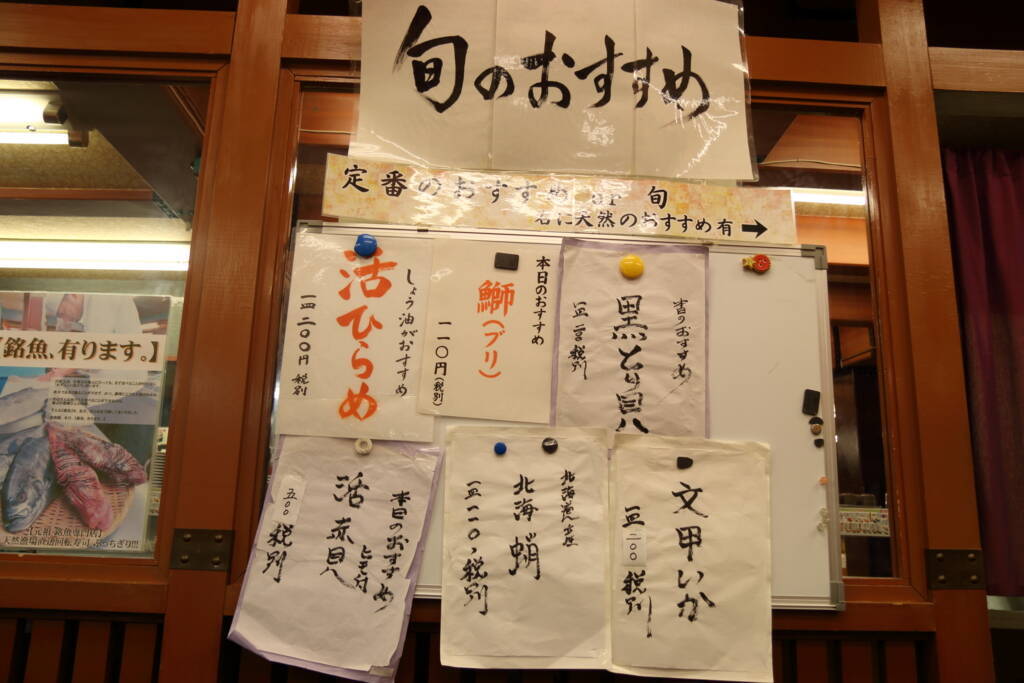 旬のおすすめ
定番のおすすめ or 旬
右に天然のおすすめ有→
しょう油がおすすめ
活ひらめ
二〇〇円 税別
本日のおすすめ
鰤(ブリ)
一一〇円(税別)
本日のおすすめ
黒とり貝
税別
本日のおすすめ
活赤貝
ヒモ付
五〇〇 税別
北海道
北海蛸
税別
文甲いか
二〇〇
税別
【銘魚、有ります。】
【元祖 銘魚専門店】
天然漁場直送回転寿司 ぶっちぎり!!!